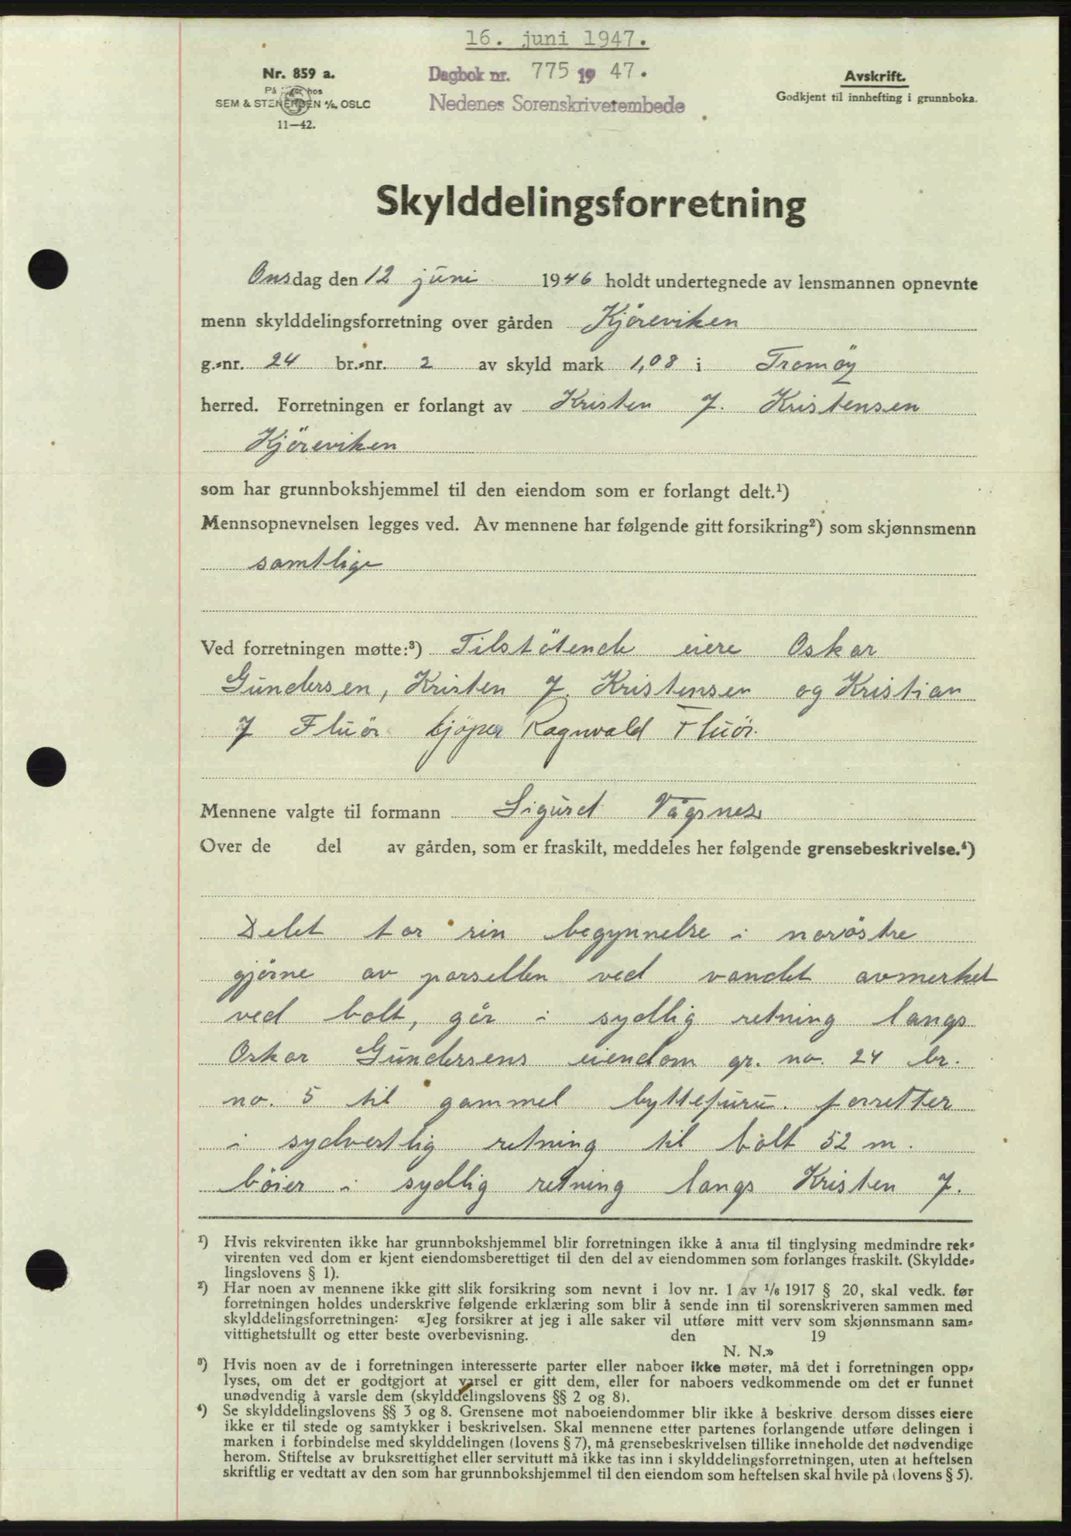 16. juni 1947.
Nr. 859 a.
Dagbok nr. 775 1947.
Avskrift.
SEM & STENERSEN A/S, OSLO
Nedenes Sorenskriverembede
Godkjent til innhefting i grunnboka.
11—42.
Skylddelingsforretning
Onsdag den 12 juni 1946 holdt undertegnede av lensmannen opnevnte
menn skylddelingsforretning over gården Kjöreviken
g.-nr. 24 br.-nr. 2 av skyld mark 1,08 i Tromöy
herred. Forretningen er forlangt av Kristen J. Kristensen
Kjöreviken
som har grunnbokshjemmel til den eiendom som er forlangt delt.¹)
Mennsopnevnelsen legges ved. Av mennene har følgende gitt forsikring²) som skjønnsmenn
samtlige
Ved forretningen møtte:³) Tilstötende eiere Oskar
Gundersen, Kristen J. Kristensen og Kristian
J Fluör kjöper Ragnvald Fluör.
Mennene valgte til formann Sigurd Vågsnes
Over de del av gården, som er fraskilt, meddeles her følgende grensebeskrivelse.⁴)
Delet tar sin begynnelse i noröstre
gjörne av parsellen ved vandet avmerket
ved bolt, går i sydlig retning langs
Oskar Gundersens eiendom gr. no. 24 br.
no. 5 til gammel byttefuru. forretter
i sydvestlig retning til bolt 52 m.
böier i sydlig retning langs Kristen J.
¹) Hvis rekvirenten ikke har grunnbokshjemmel blir forretningen ikke å anta til tinglysing medmindre rek-
virenten ved dom er kjent eiendomsberettiget til den del av eiendommen som forlanges fraskilt. (Skyldde-
lingslovens § 1).
²) Har noen av mennene ikke gitt slik forsikring som nevnt i lov nr. 1 av 1/6 1917 § 20, skal vedk. før
forretningen holdes underskrive følgende erklæring som blir å sende inn til sorenskriveren sammen med
skylddelingsforretningen: «Jeg forsikrer at jeg i alle saker vil utføre mitt verv som skjønnsmann sam-
vittighetsfullt og etter beste overbevisning. den 19
N. N.»
³) Hvis noen av de i forretningen interesserte parter eller naboer ikke møter, må det i forretningen opp-
lyses, om det er godtgjort at varsel er gitt dem, eller for naboers vedkommende om det er funnet
unødvendig å varsle dem (skylddelingslovens §§ 2 og 8).
⁴) Se skylddelingslovens §§ 3 og 8. Grensene mot naboeiendommer blir ikke å beskrive dersom disses eiere
ikke er til stede og samtykker i beskrivelsen. Skal mennene etter partenes forlangende utføre delingen i
marken i forbindelse med skylddelingen (lovens § 7), må grensebeskrivelsen tillike inneholde det nødvendige
herom. Stiftelse av bruksrettighet eller servitutt må ikke tas inn i skylddelingsforretningen, uten at heftelsen
skriftlig er vedtatt av den som har grunnbokshjemmel til den eiendom som heftelsen skal hvile på (lovens § 5).